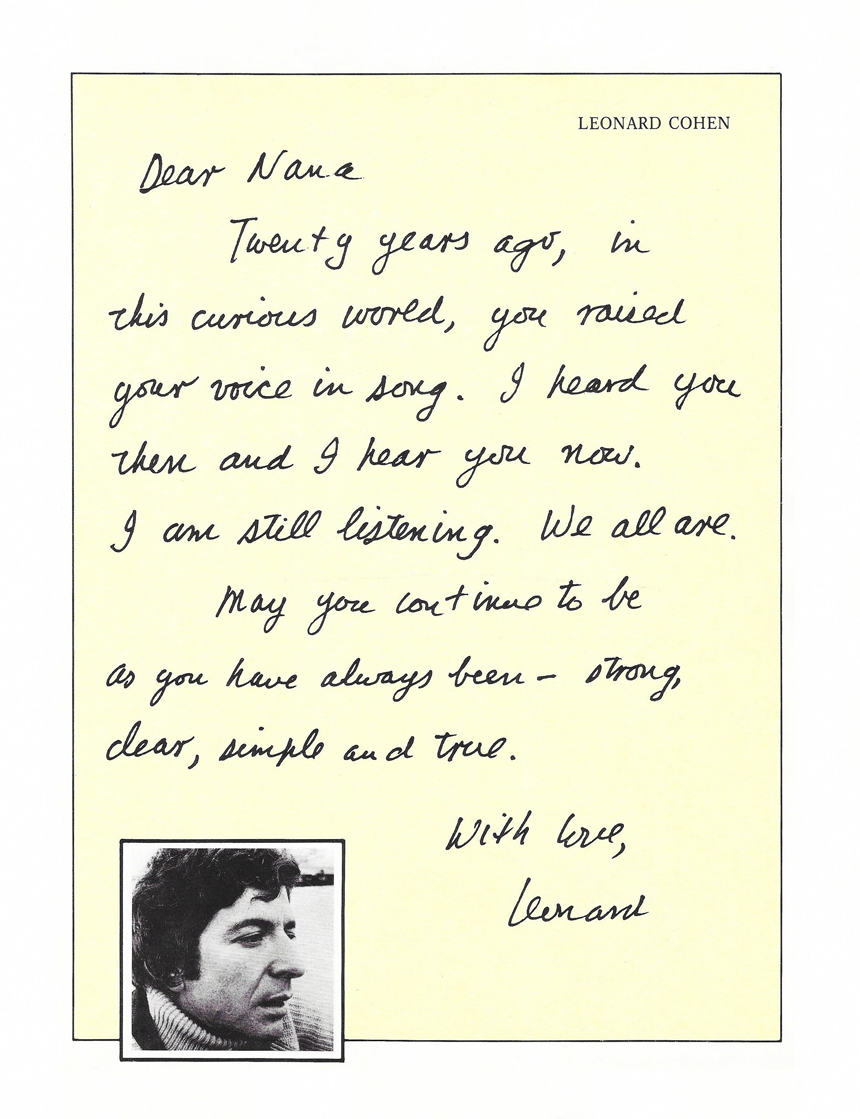 LEONARD COHEN
Dear Nana
Twenty years ago, in
this curious world, you raised
your voice in song. I heard you
then and I hear you now.
I am still listening. We all are.
May you continue to be
as you have always been – strong,
clear, simple and true.
With love,
Leonard